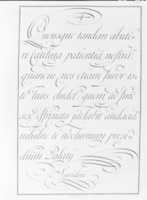 Quousque tandem abute-
re Catilina patientia nostra?
quamdiu nos etiam furor is-
te tuus eludet? quem ad fin-
em sese effrenata jactabit audacia?
nihilne te nocturnum præsi-
dium Palaty